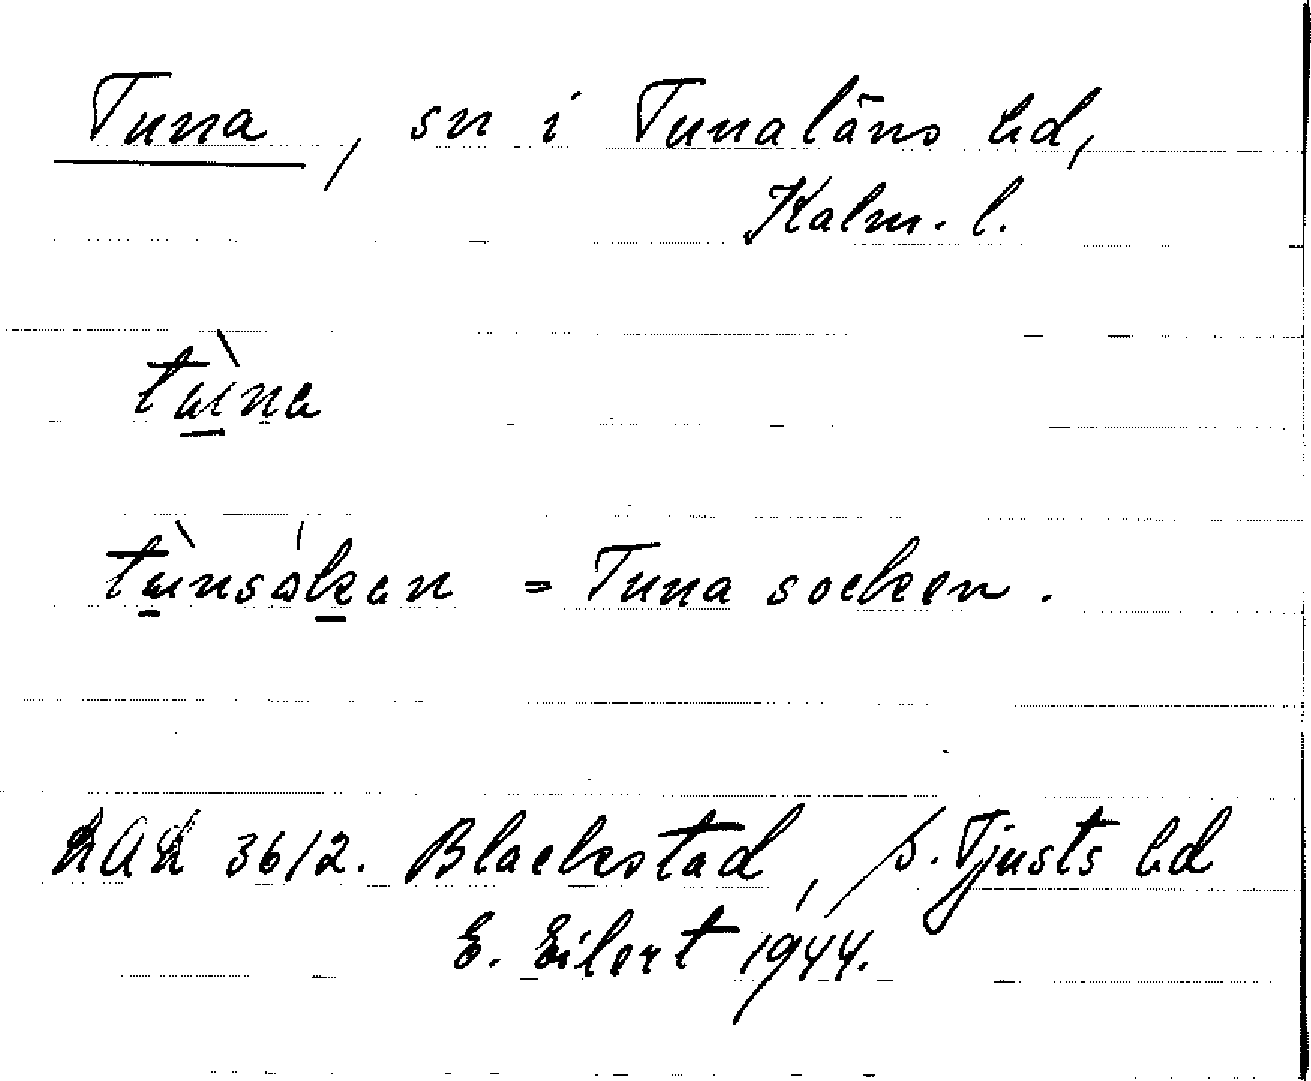 Tuna, sn i Tunaläns hd,
Kalm. l.
tu̱̇̀na
tu̱̇̀nsȯ́ḵan = Tuna socken.
3612. Blackstad, S. Tjusts hd
E. Eilert 1944.